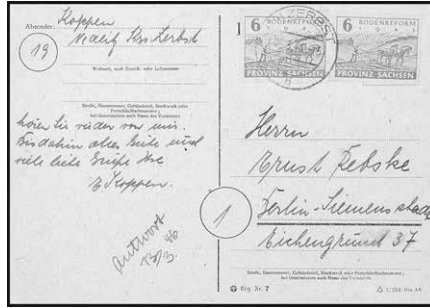 Absender:
Koppen
Krs. Zerbst
19
Wohnort, auch Zustell- oder Leitpostamt
Straße, Hausnummer, Gebäudeteil, Stockwerk oder Postschließfachnummer;
bei Untermietern auch Name des Vermieters
hören Sie wieder von mir.
Bis dahin alles Gute und
viele liebe Grüße Ihre
E. Koppen.
Antwort
13/3. 46
6 BODENREFORM
1945
PROVINZ SACHSEN
6 BODENREFORM
1945
PROVINZ SACHSEN
ZERBST
Herrn
Ernst
1
Berlin-Siemensstadt
Eichengrund 37
Straße, Hausnummer, Gebäudeteil, Stockwerk oder Postschließfachnummer;
bei Untermietern auch Name des Vermieters
Erg. Nr. 7